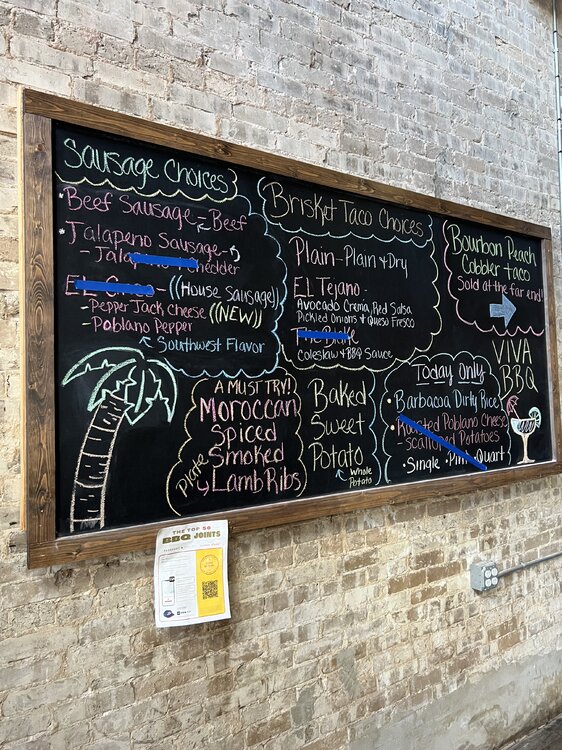 Sausage Choices
* Beef Sausage - Beef
* Jalapeno Sausage -
- Jala Chedder
((House Sausage))
- Pepper Jack Cheese ((NEW))
- Poblano Pepper
Southwest Flavor
Brisket Taco Choices
Plain - Plain & Dry
El Tejano -
Avocado Crema, Red Salsa
Pickled Onions & Queso Fresco
Coleslaw & BBQ Sauce
Bourbon Peach
Cobbler + taco
Sold at the far end!
VIVA
BBQ
A MUST TRY!
Moroccan
Spiced
Smoked
Lamb Ribs
Plate
Baked
Sweet
Potato
Whole
Potato
Today Only
• Barbacoa, Dirty Rice
• Roasted Poblano Cheese
Scalloped Potatoes
• Single • Pint • Quart
THE TOP 50
BBQ JOINTS